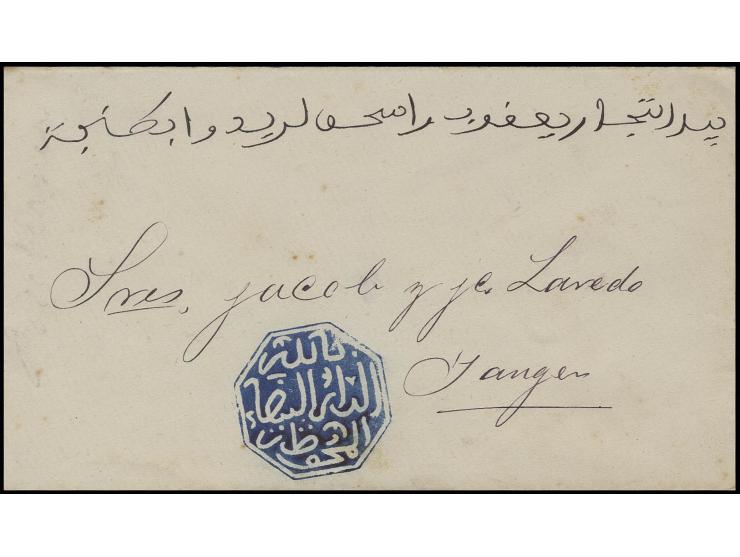 بيد التجار يعقوب واسحق لريدوا بطنجة
Sres. Jacob y Je. Laredo
Tanger
الدار البيضاء
المحفوظة